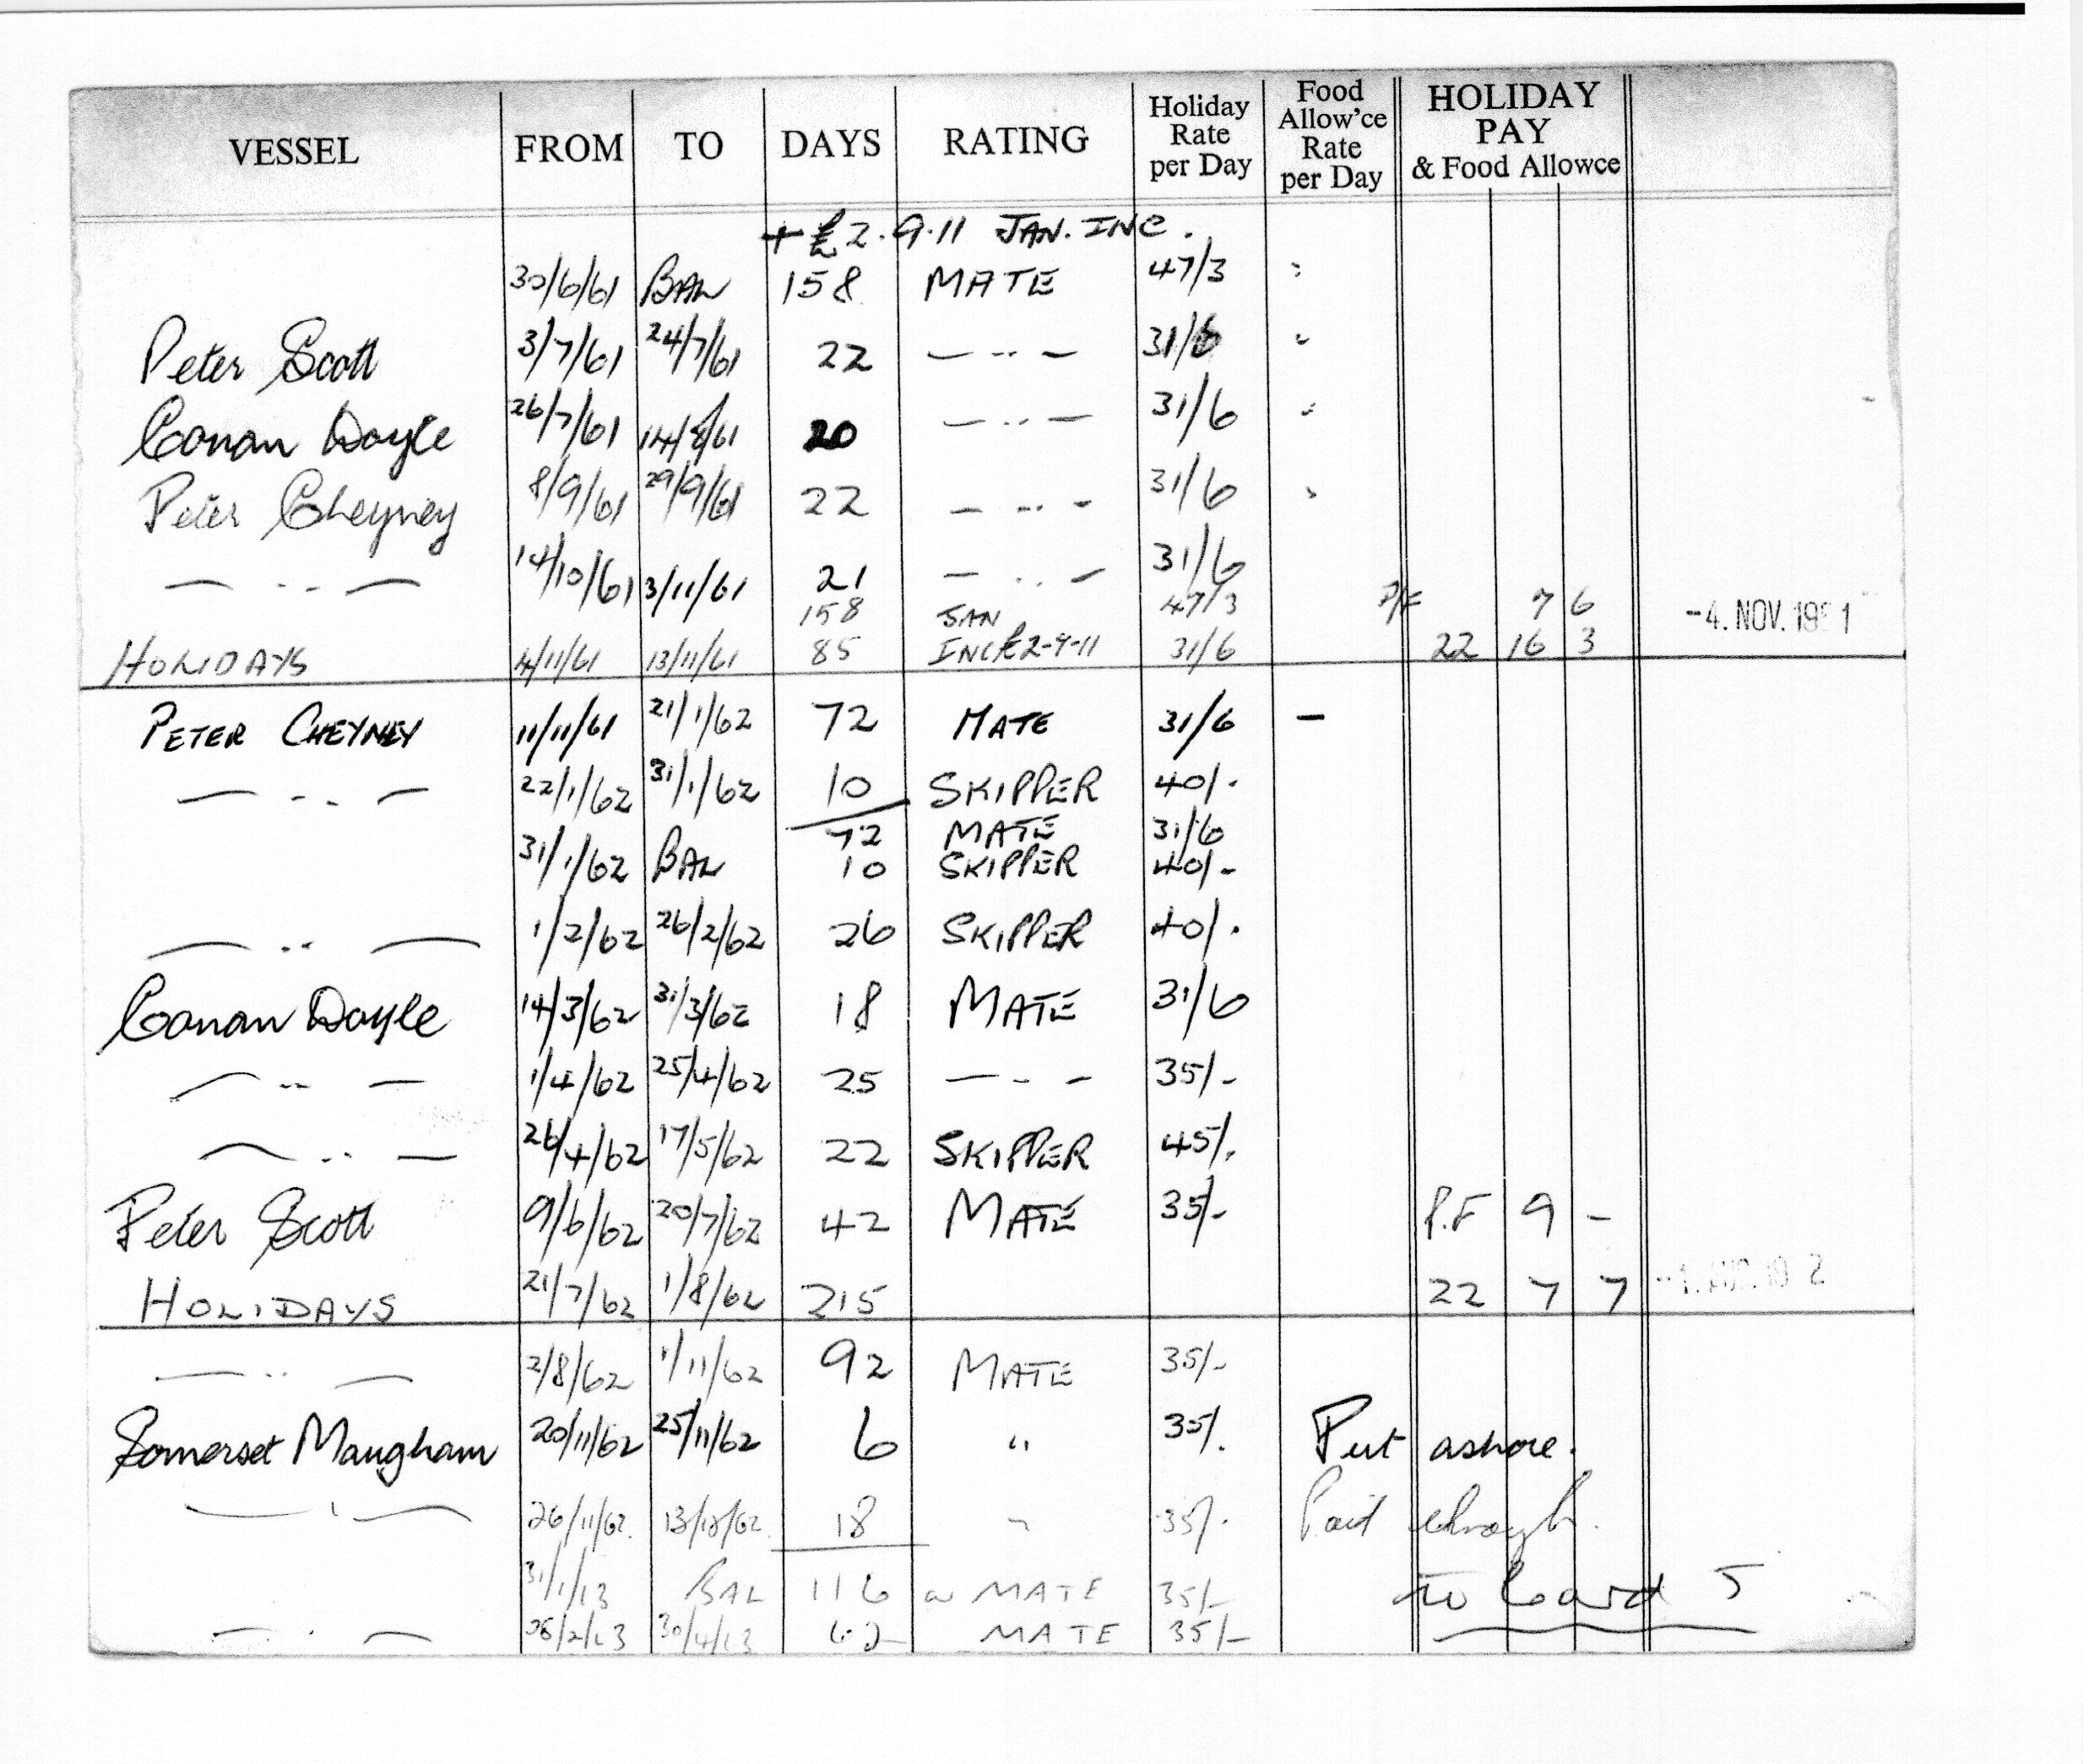 VESSEL FROM TO DAYS RATING Holiday Rate per Day Food Allow'ce Rate per Day HOLIDAY PAY & Food Allowce
+ £2.9.11 JAN. INC.
30/6/61 BAL 158 MATE 47/3 "
Peter Scott 3/7/61 24/7/61 22 — .. — 31/6 "
Conan Doyle 26/7/61 14/8/61 20 — .. — 31/6 "
Peter Cheyney 8/9/61 29/9/61 22 — .. — 31/6 "
— .. — 14/10/61 3/11/61 21 — .. — 31/6
158 JAN 47/3 P/F 7 6
HOLIDAYS 4/11/61 13/11/61 85 INC £2-9-11 31/6 22 16 3 -4. NOV. 1961
PETER CHEYNEY 11/11/61 21/1/62 72 MATE 31/6 —
— .. — 22/1/62 31/1/62 10 SKIPPER 40/-
72 MATE 31/6
31/1/62 BAL 10 SKIPPER 40/-
— .. — 1/2/62 26/2/62 26 SKIPPER 40/-
Conan Doyle 14/3/62 31/3/62 18 MATE 31/6
— .. — 1/4/62 25/4/62 25 — .. — 35/-
— .. — 26/4/62 17/5/62 22 SKIPPER 45/-
Peter Scott 9/6/62 20/7/62 42 MATE 35/- P.F 9 -
HOLIDAYS 21/7/62 1/8/62 215 22 7 7
— .. — 2/8/62 1/11/62 92 MATE 35/-
Somerset Maugham 20/11/62 25/11/62 6 " 35/- Put ashore.
— " — 26/11/62 13/12/62 18 " 35/- Paid through.
31/1/63 BAL 116 MATE 35/- to Card 5
— .. — 30/4/63 MATE 35/-